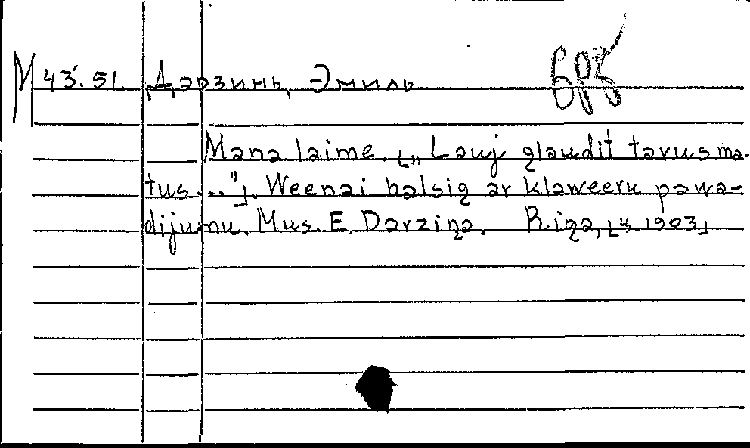 М 43.51. Дарзинь, Эмиль
Mana laime. [„Lauj glaudit tavus ma-
tus..."]. Weenai balsig ar klaweeru pawa-
dijumu. Mus. E. Darziņa. Riga, [s. 1903]